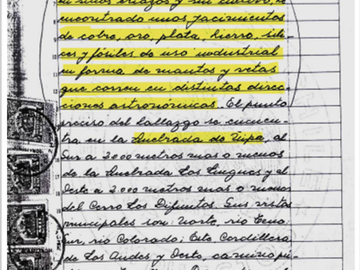 encontrado unos yacimientos
de cobre, oro, plata, hierro, síli-
ces y fósiles de uso industrial
en forma de mantos y vetas
que corren en distintas direc-
ciones astronómicas. El punto
preciso del hallazgo se encuen-
tra en la Quebrada de Zupa, al
Sur a 2000 metros mas o menos
de la Quebrada Los Lingues y al
Oeste a 2000 metros mas o menos
del Cerro Los Difuntos. Sus vistas
principales son: Norte, río Teno
Sur, río Colorado; Este Cordillera
de Los Andes y Oeste, camino pú-